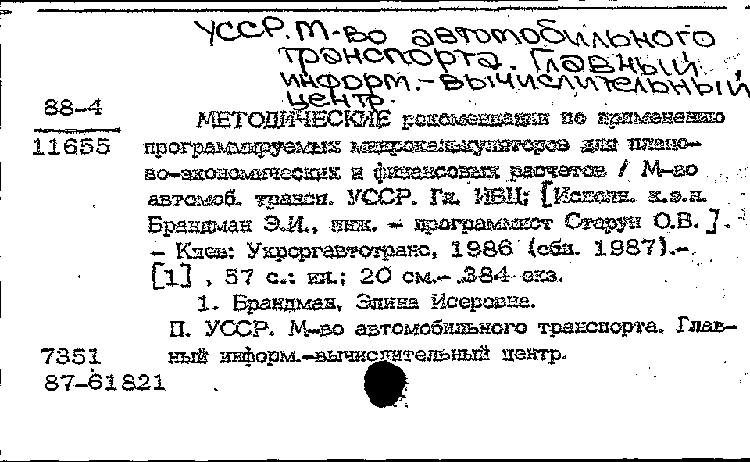 УССР. М-во автомобильного
транспорта. Главный
информ.-вычислительный
центр.
88-4
МЕТОДИЧЕСКИЕ рекомендации по применению
11655 программируемых микрокалькуляторов для плано-
во-экономических и финансовых расчетов / М-во
автомоб. трансп. УССР. Гл. ИВЦ; [Исполн. к.э.н.
Брандман Э.И., инж. - программист Старун О.В.].
- Киев: Укроргавтотранс, 1986 (обл. 1987).-
[1], 57 с.: ил.; 20 см.- 384 экз.
1. Брандман, Элина Исеровна.
П. УССР. М-во автомобильного транспорта. Глав-
7351 ный информ.-вычислительный центр.
87-61821